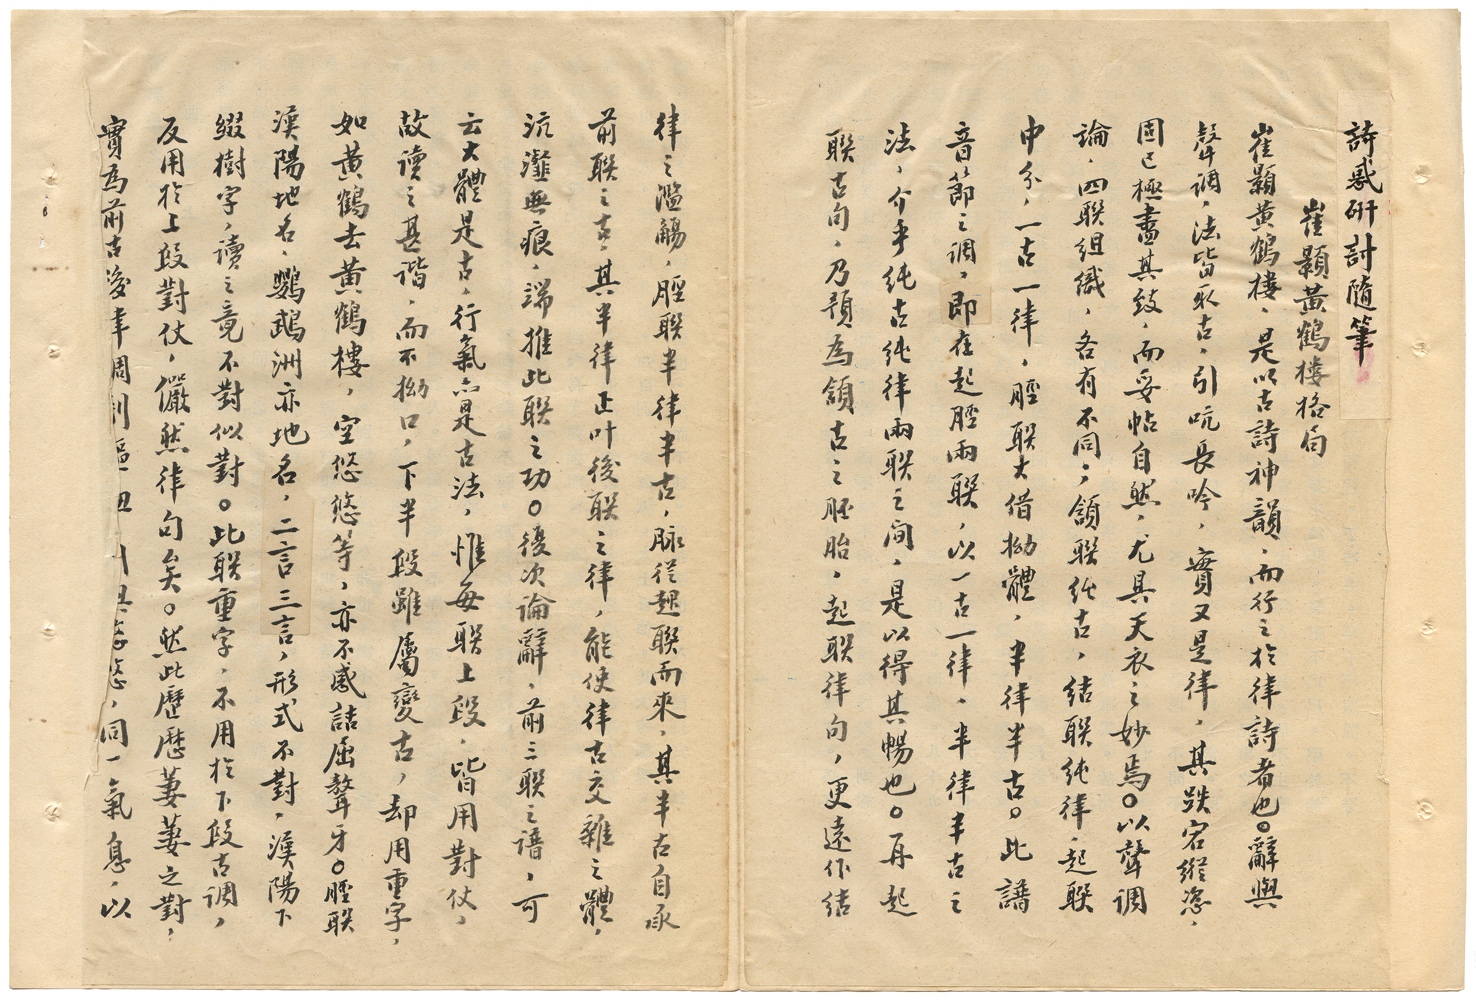 詩感研討隨筆
崔顥黃鶴樓格局
崔顥黃鶴樓、是以古詩神韻、而行之於律詩者也。辭與
聲調，法皆取古、引吭長吟，實又是律，其跌宕縱恣，
固已極盡其致、而妥帖自然，尤具天衣之妙焉。以聲調
論、四聯組織，各有不同；頷聯純古，結聯純律、起聯
中分，一古一律，脛聯大借拗體，半律半古。此譜
音節之調，即在起脛兩聯，以一古一律，半律半古之
法，介乎純古純律兩聯之間，是以得其暢也。再起
聯古句，乃預為頷古之胚胎，起聯律句，更遠作結
律之濫觴，脛聯半律半古，脉從起聯而來，其半古自承
前聯之古，其半律正叶後聯之律，能使律古交雜之體，
沆瀣無痕，端推此聯之功。後次論辭，前三聯之譜，可
云大體是古，行氣亦是古法，惟每聯上段，皆用對仗，
故讀之甚諧，而不拗口，下半段雖屬變古，却用重字，
如黃鶴去黃鶴樓，空悠悠等，亦不感詰屈聱牙。脛聯
漢陽地名，鸚鵡洲亦地名，二言三言，形式不對，漢陽下
綴樹字，讀之竟不對似對。此聯重字，不用於下段古調，
反用於上段對仗，儼然律句矣。然此歷歷萋萋之對，
實為前古後律調 悠，同一氣息，以